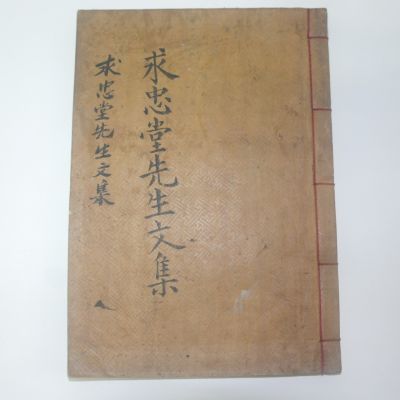 求忠堂先生文集
求忠堂先生文集